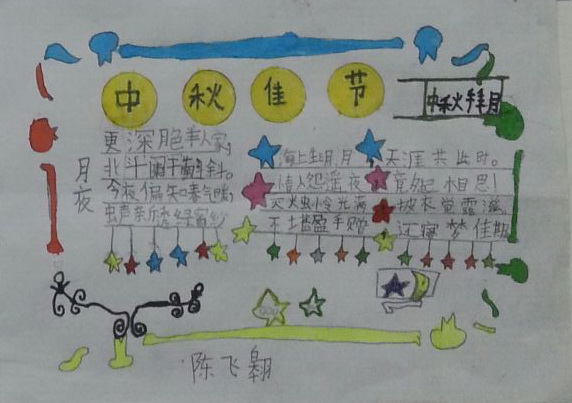 中秋佳节
中秋
月夜
更深月色半人家,
北斗阑干南斗斜。
今夜偏知春气暖,
虫声新透绿窗纱
海上生明月
天涯共此时。
情人怨遥夜
竟夕起相思!
灭火虫怜光满
披衣觉露滋
不堪盈手赠
还寝梦佳期
陈飞翱